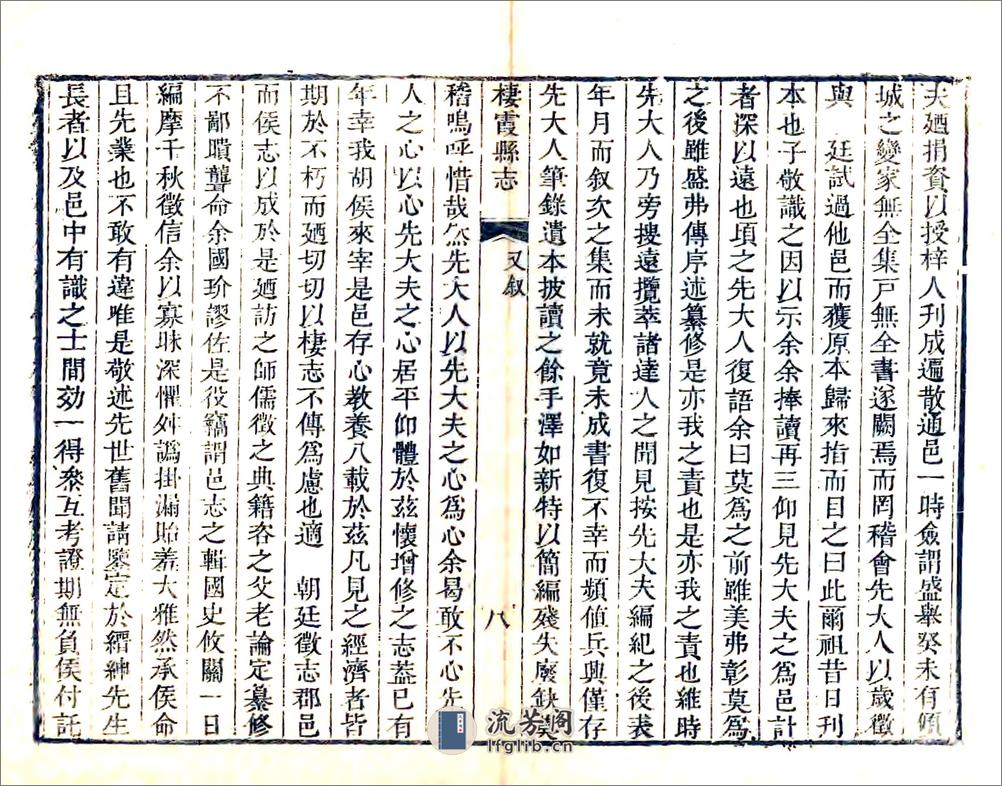 夫廼捐資以授梓人刊成遍散通邑一時僉謂盛舉癸未有
城之變家無全集戶無全書遂闕焉而罔稽會先大人以歲徵
與　廷試過他邑而獲原本歸來指而目之曰此爾祖昔日刊
本也子敬識之因以示余余捧讀再三仰見先大夫之爲邑計
者深以遠也頃之先大人復語余曰莫爲之前雖美弗彰莫爲
之後雖盛弗傳序述纂修是亦我之責也是亦我之責也維時
先大人乃旁搜遠攬萃諸達人之聞見按先大夫編紀之後裘
年月而叙次之集而未就竟未成書復不幸而頻値兵興僅存
先大人筆錄遺本披讀之餘手澤如新特以簡編殘失廢缺
棲霞縣志
又叙
八
稽嗚呼惜哉然先大人以先大夫之心爲心余曷敢不心先
人之心以心先大夫之心居平仰體於茲懷增修之志蓋已有
年幸我胡侯來宰是邑存心教養八載於茲凡見之經濟者皆
期於不朽而廼切切以棲志不傳爲慮也適　朝廷徵志郡邑
而侯志以成於是廼訪之師儒徵之典籍咨之父老論定纂修
不鄙聵聾命余國玠謬佐是役竊謂邑志之輯國史攸關一日
編摩千秋徵信余以寡昧深懼舛譌掛漏貽羞大雅然承侯命
且先業也不敢有違唯是敬述先世舊聞請鑒定於縉紳先生
長者以及邑中有識之士間効一得參互考證期無負侯付託
流芳阁
lfglib.cn